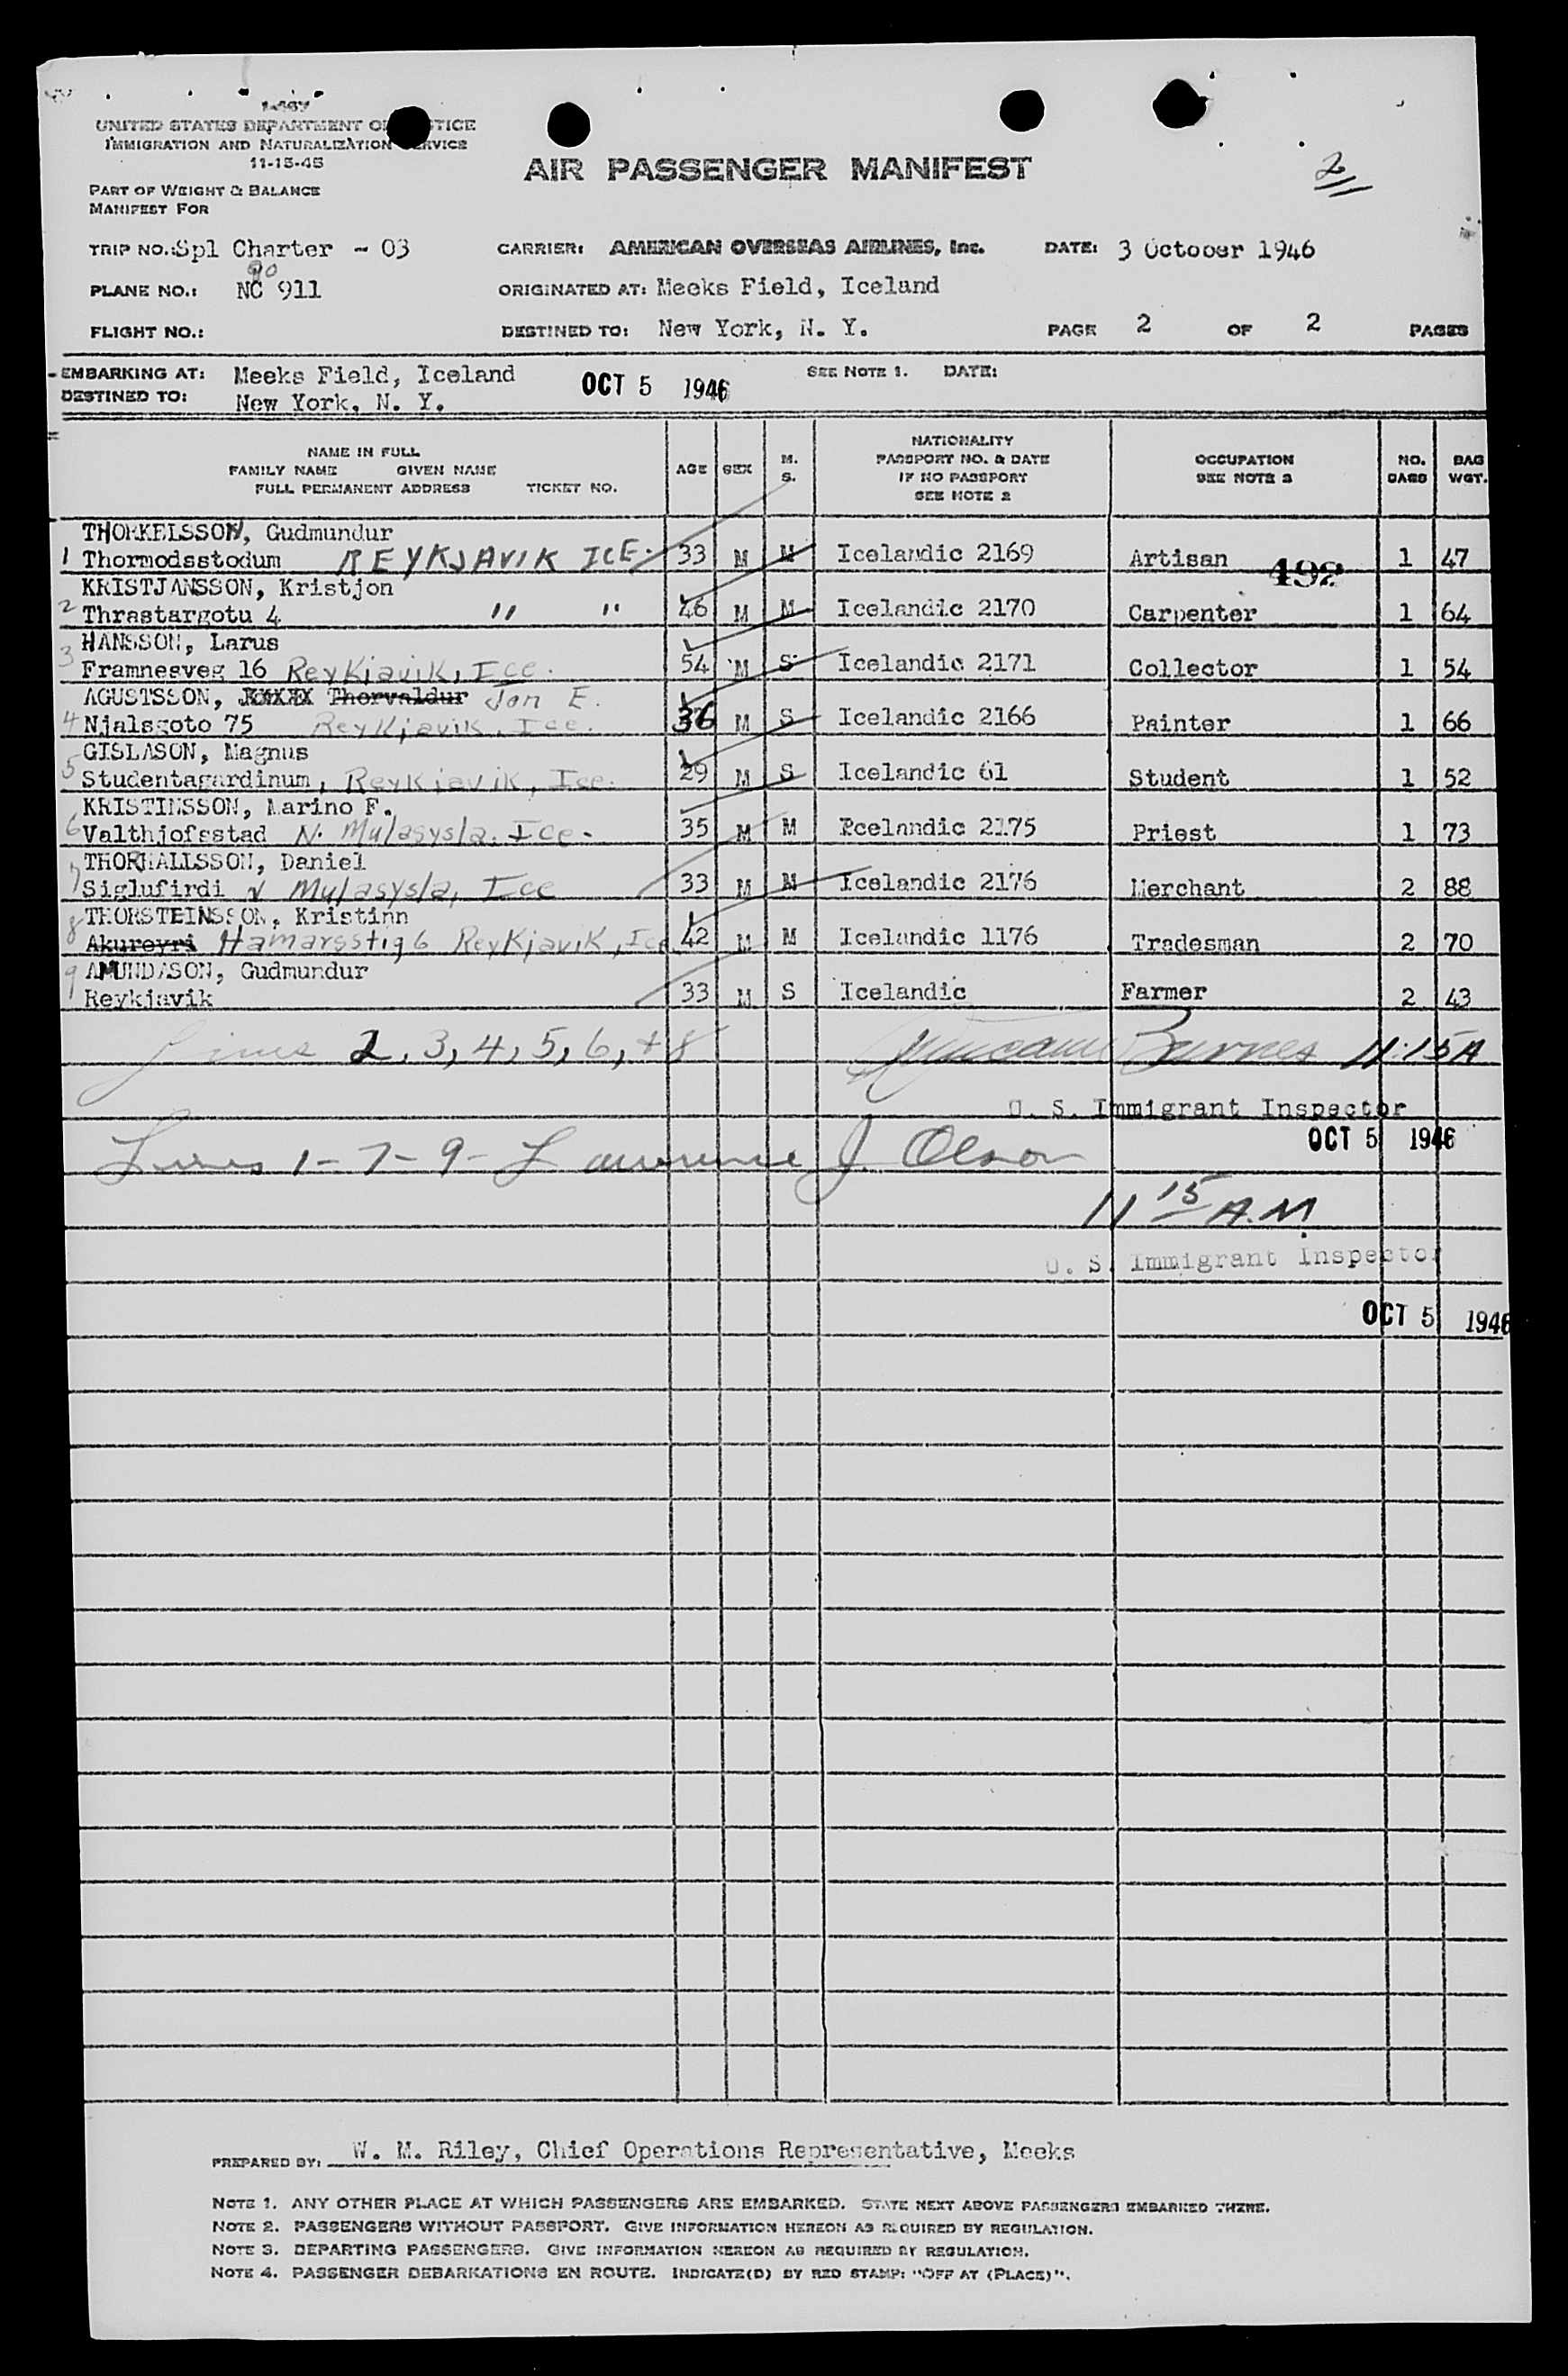 1-467
UNITED STATES DEPARTMENT OF JUSTICE
IMMIGRATION AND NATURALIZATION SERVICE
11-15-45
PART OF WEIGHT & BALANCE
MANIFEST FOR
AIR PASSENGER MANIFEST
2
TRIP NO.: Spl Charter - 03 CARRIER: AMERICAN OVERSEAS AIRLINES, Inc. DATE: 3 October 1946
90
PLANE NO.: NC 911 ORIGINATED AT: Meeks Field, Iceland
FLIGHT NO.: DESTINED TO: New York, N. Y. PAGE 2 OF 2 PAGES
EMBARKING AT: Meeks Field, Iceland OCT 5 1946 SEE NOTE 1. DATE:
DESTINED TO: New York, N. Y.
NAME IN FULL
FAMILY NAME GIVEN NAME
FULL PERMANENT ADDRESS TICKET NO.
AGE SEX M. S.
NATIONALITY
PASSPORT NO. & DATE
IF NO PASSPORT
SEE NOTE 2
OCCUPATION
SEE NOTE 3
NO. BAGS
BAG WGT.
THORKELSSON, Gudmundur
1 Thormodsstodum REYKJAVIK ICE. 33 M M Icelandic 2169 Artisan 492 1 47
KRISTJANSSON, Kristjon
2 Thrastargotu 4 " " 46 M M Icelandic 2170 Carpenter 1 64
HANSSON, Larus
3 Framnesveg 16 Reykjavik, Ice. 54 M S Icelandic 2171 Collector 1 54
AGUSTSSON, XXXXX Thorvaldur Jon E.
4 Njalsgoto 75 Reykjavik, Ice. 36 M S Icelandic 2166 Painter 1 66
GISLASON, Magnus
5 Studentagardinum, Reykjavik, Ice. 29 M S Icelandic 61 Student 1 52
KRISTINSSON, Marino F.
6 Valthjofsstad N. Mulasysla, Ice. 35 M M Icelandic 2175 Priest 1 73
THORHALLSSON, Daniel
7 Siglufirdi N Mulasysla, Ice 33 M M Icelandic 2176 Merchant 2 88
THORSTEINSSON, Kristinn
8 Akureyri Hamarsstig 6 Reykjavik, Ice 42 M M Icelandic 1176 Tradesman 2 70
AMUNDASON, Gudmundur
9 Reykjavik 33 M S Icelandic Farmer 2 43
Lines 2, 3, 4, 5, 6, + 8 Barnes 11:15 A
U. S. Immigrant Inspector
OCT 5 1946
Lines 1-7-9- Lawrence J. Olson
11 15 A.M
U. S. Immigrant Inspector
OCT 5 1946
PREPARED BY: W. M. Riley, Chief Operations Representative, Meeks
NOTE 1. ANY OTHER PLACE AT WHICH PASSENGERS ARE EMBARKED. STATE NEXT ABOVE PASSENGERS EMBARKED THERE.
NOTE 2. PASSENGERS WITHOUT PASSPORT. GIVE INFORMATION HEREON AS REQUIRED BY REGULATION.
NOTE 3. DEPARTING PASSENGERS. GIVE INFORMATION HEREON AS REQUIRED BY REGULATION.
NOTE 4. PASSENGER DEBARKATIONS EN ROUTE. INDICATE(D) BY RED STAMP: "OFF AT (PLACE)".